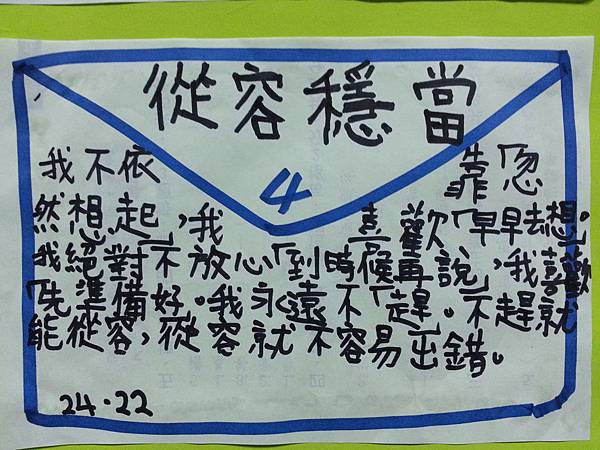 從容穩當
4
我不依 靠「忽
然想起」,我 喜歡「早早去想」。
我絕對不放心「到時候再說」,我喜歡
「先準備好。我永遠不「趕」。不趕就
能從容,從容就不容易出錯。
24.22